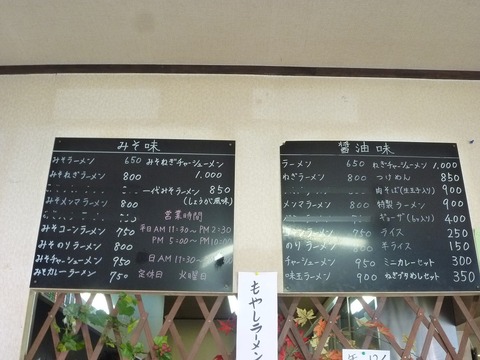 みそ味
みそラーメン 650 みそねぎチャーシューメン
みそねぎラーメン 800 1.000
一代みそラーメン 850
みそメンマラーメン 800 (しょうが風味)
営業時間
みそコーンラーメン 750 平日 AM 11:30~PM 2:30
みそのりラーメン 800 PM 5:00~PM 10:00
みそチャーシューメン 950 日 AM 11:30~
みそカレーラーメン 750 定休日 火曜日
醤油味
ラーメン 650 ねぎチャーシューメン 1.000
ねぎラーメン 800 つけめん 850
肉そば(生玉子入り) 900
メンマラーメン 800 特製ラーメン 900
ギョーザ 400
ライス 250
のりラーメン 800 半ライス 150
チャーシューメン 950 ミニカレーセット 300
味玉ラーメン 900 ねぎづりめしセット 350
もやしラーメン